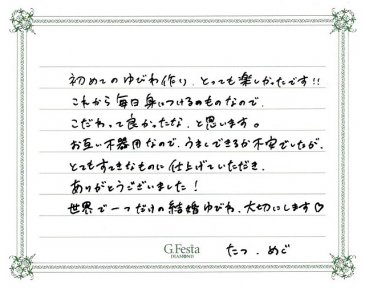 初めてのゆびわ作り、とっても楽しかったです!!
これから毎日身につけるのものなので、
こだわって良かったな、と思います。
お互い不器用なので、うまくできるか不安でしたが、
とてもすてきなものに仕上げていただき、
ありがとうございました！
世界で一つだけの結婚ゆびわ、大切にします♡
G.Festa
DIAMOND
たつ、めぐ